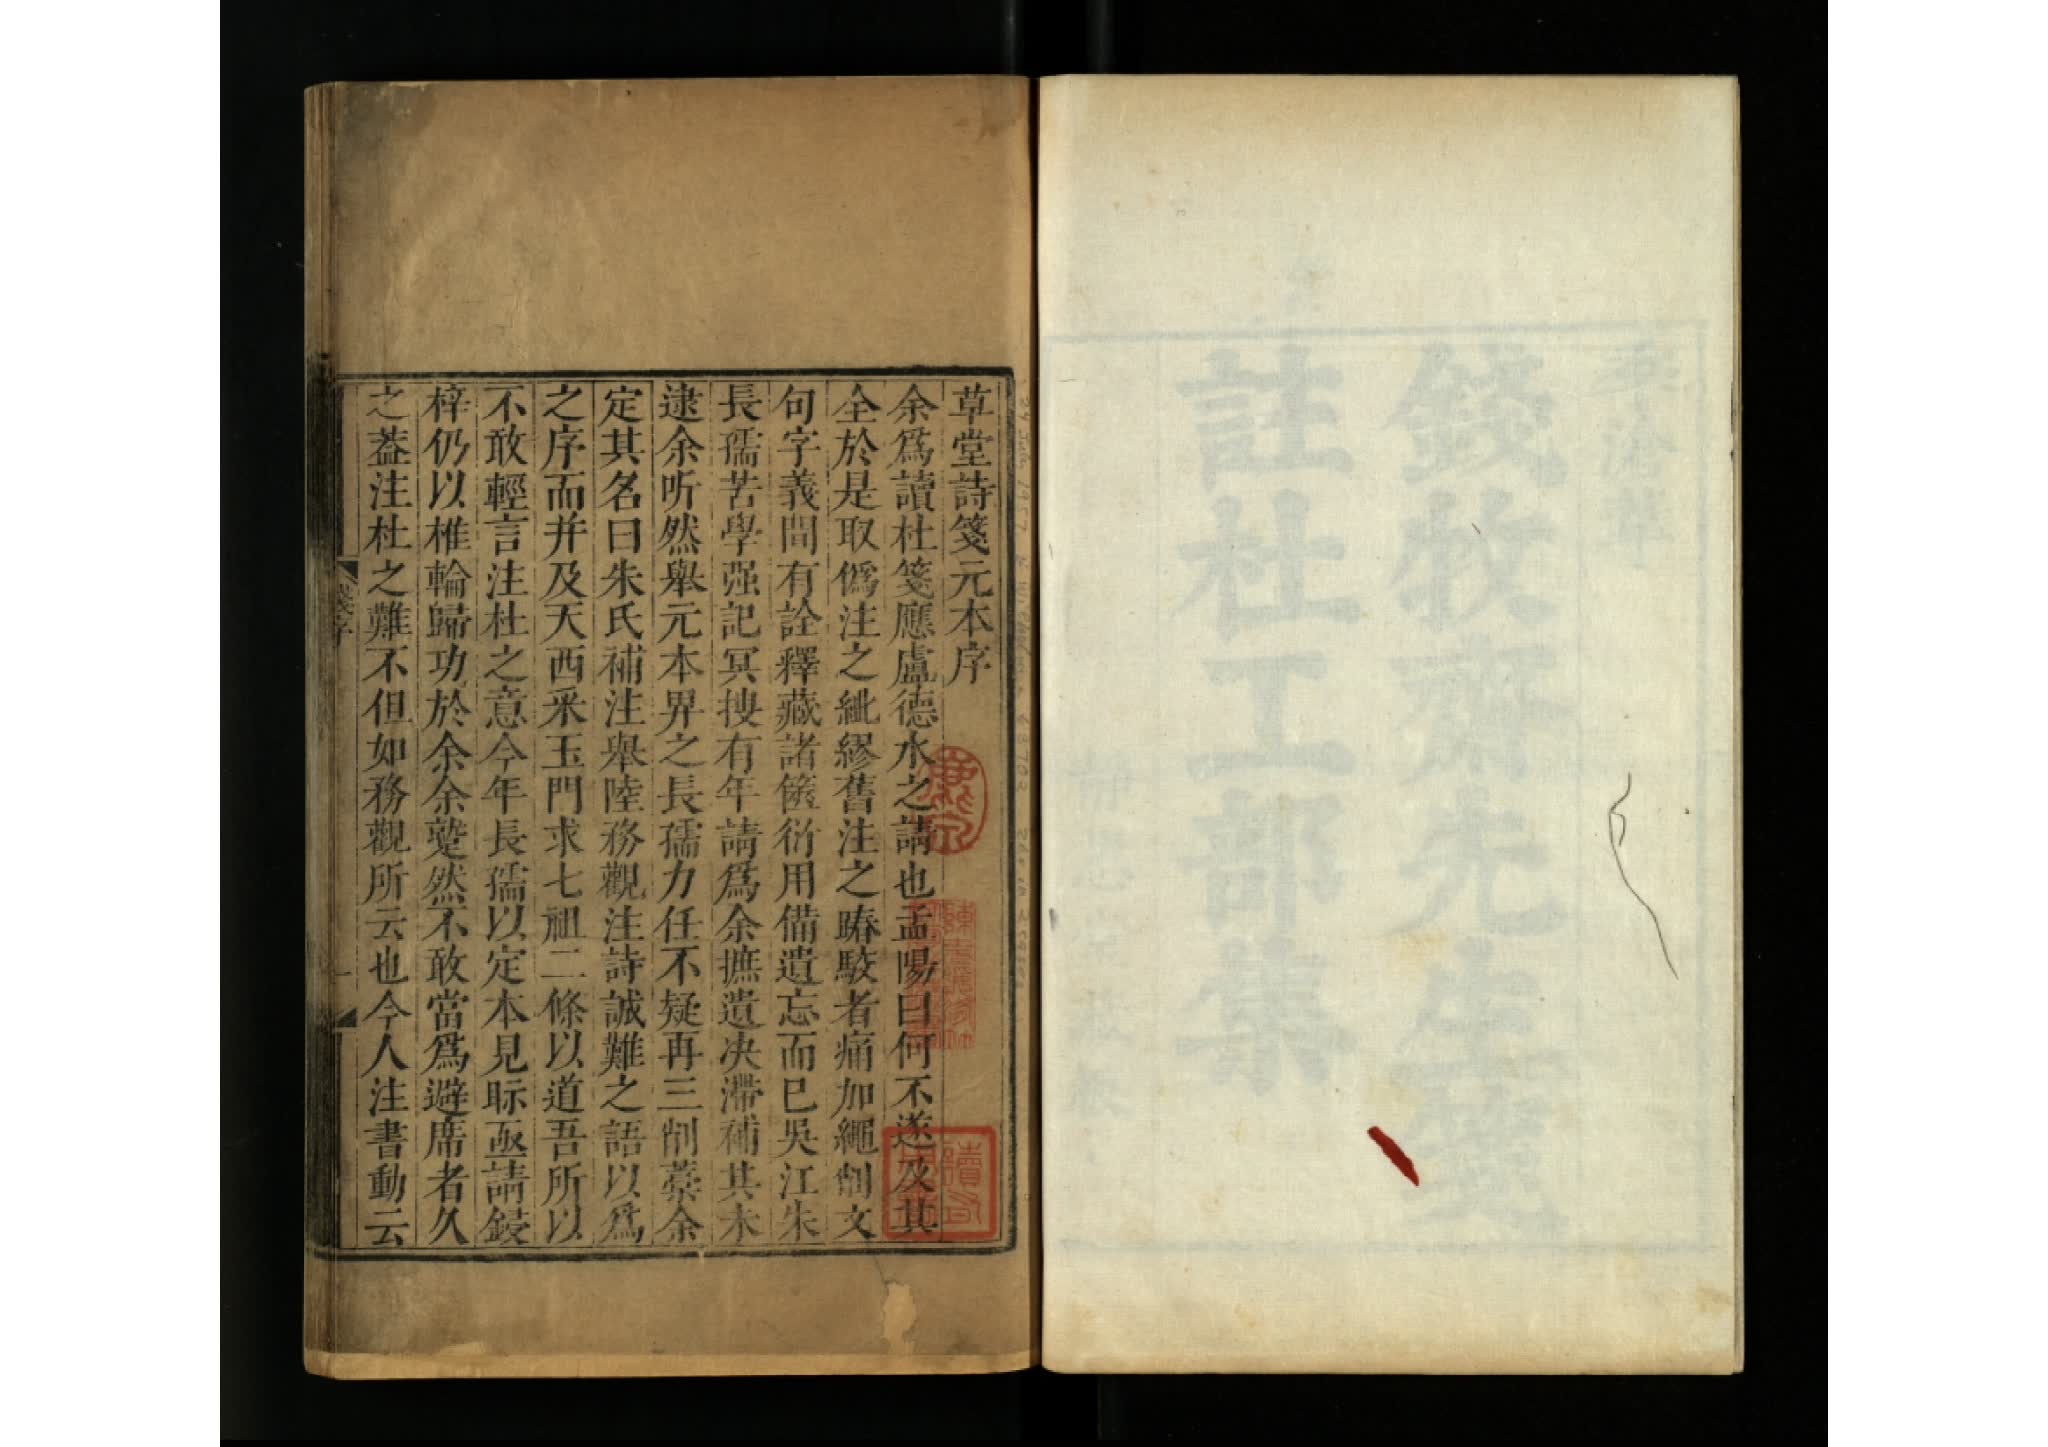 季滄葦
錢牧齋先生箋
註杜工部集
靜思堂藏板
草堂詩箋元本序
余爲讀杜箋應盧德水之請也孟陽曰何不遂及其
全於是取僞注之紕繆舊注之踳駮者痛加繩削文
句字義間有詮釋藏諸篋衍用備遺忘而已吳江朱
長孺苦學强記冥搜有年請爲余摭遺决滯補其未
逮余听然舉元本畀之長孺力任不疑再三削藁余
定其名曰朱氏補注舉陸務觀注詩誠難之語以爲
之序而并及天西采玉門求七祖二條以道吾所以
不敢輕言注杜之意今年長孺以定本見眎亟請鋟
梓仍以椎輪歸功於余余蹵然不敢當爲避席者久
之葢注杜之難不但如務觀所云也今人注書動云
箋序
一